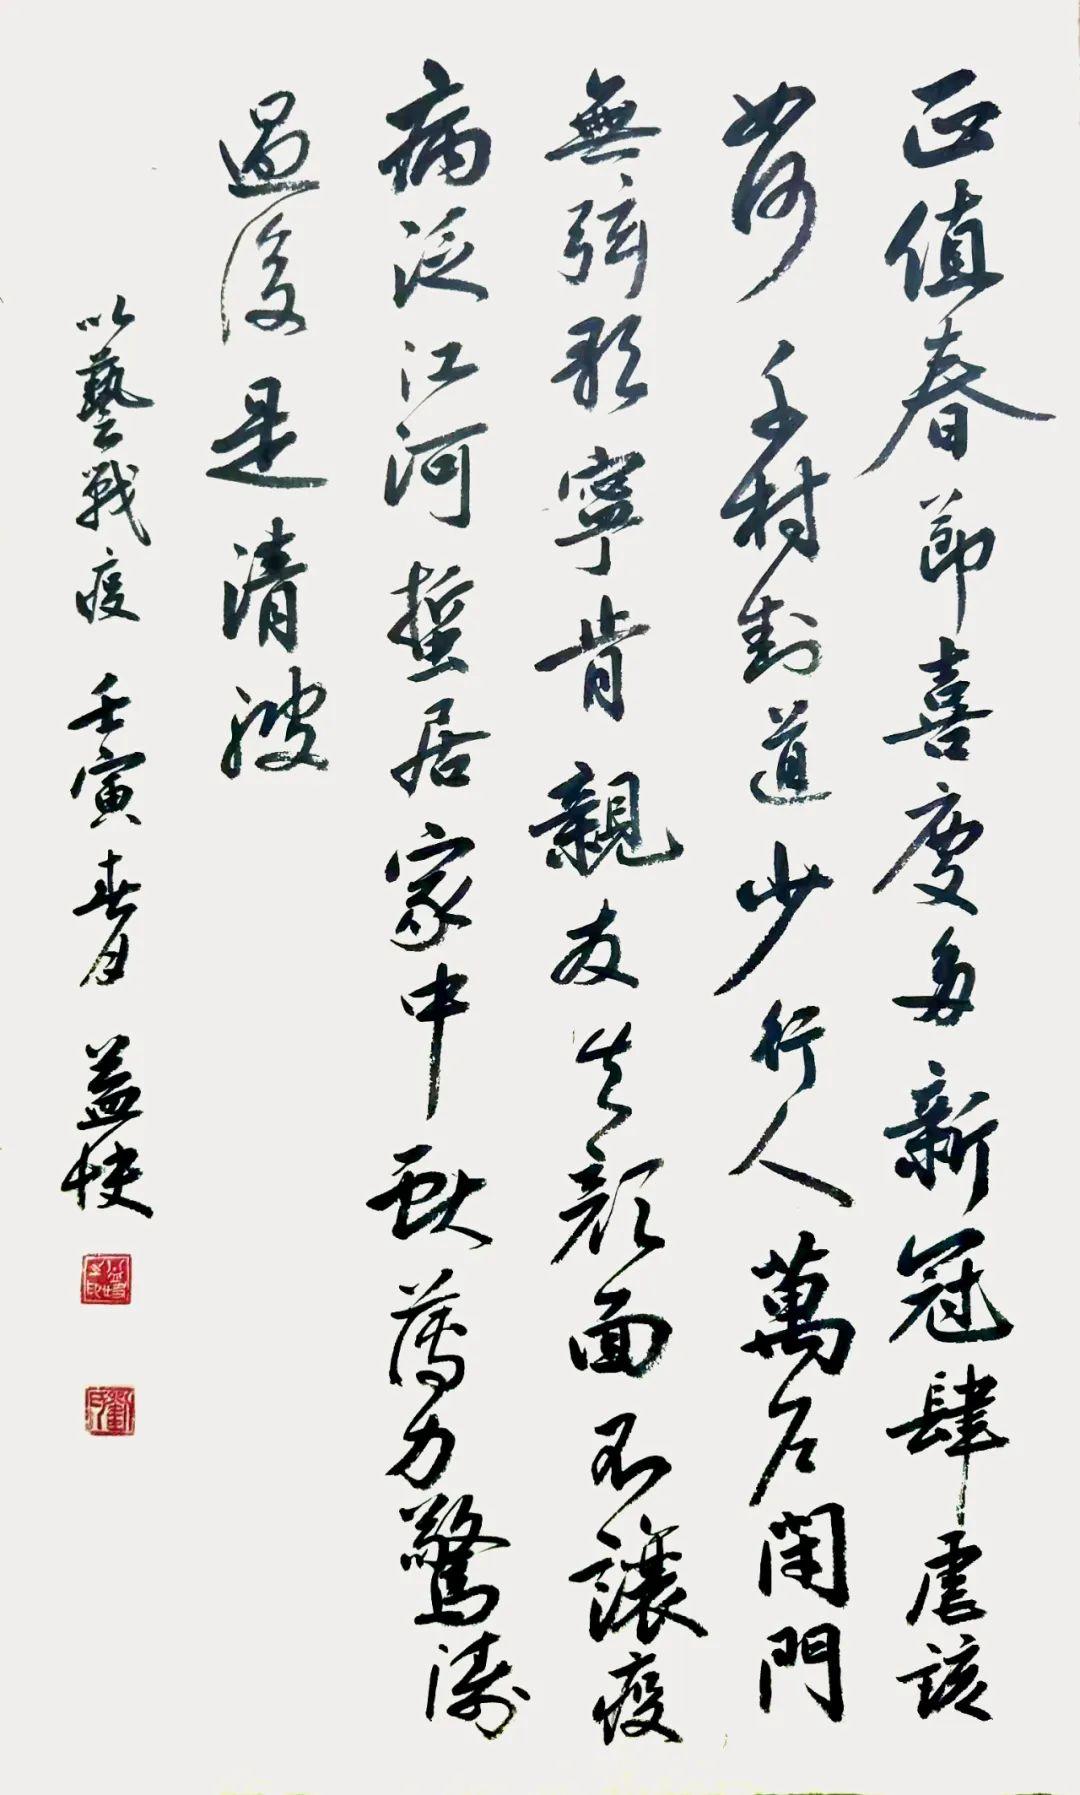 正值春節喜慶多新冠肆虐該
如何千村封道少行人萬户閉門
無弦歌寧肯親友失顔面不讓疫
病泛江河蟄居家中献薄力驚濤
過後是清波
以藝戰疫 壬寅春月 益快